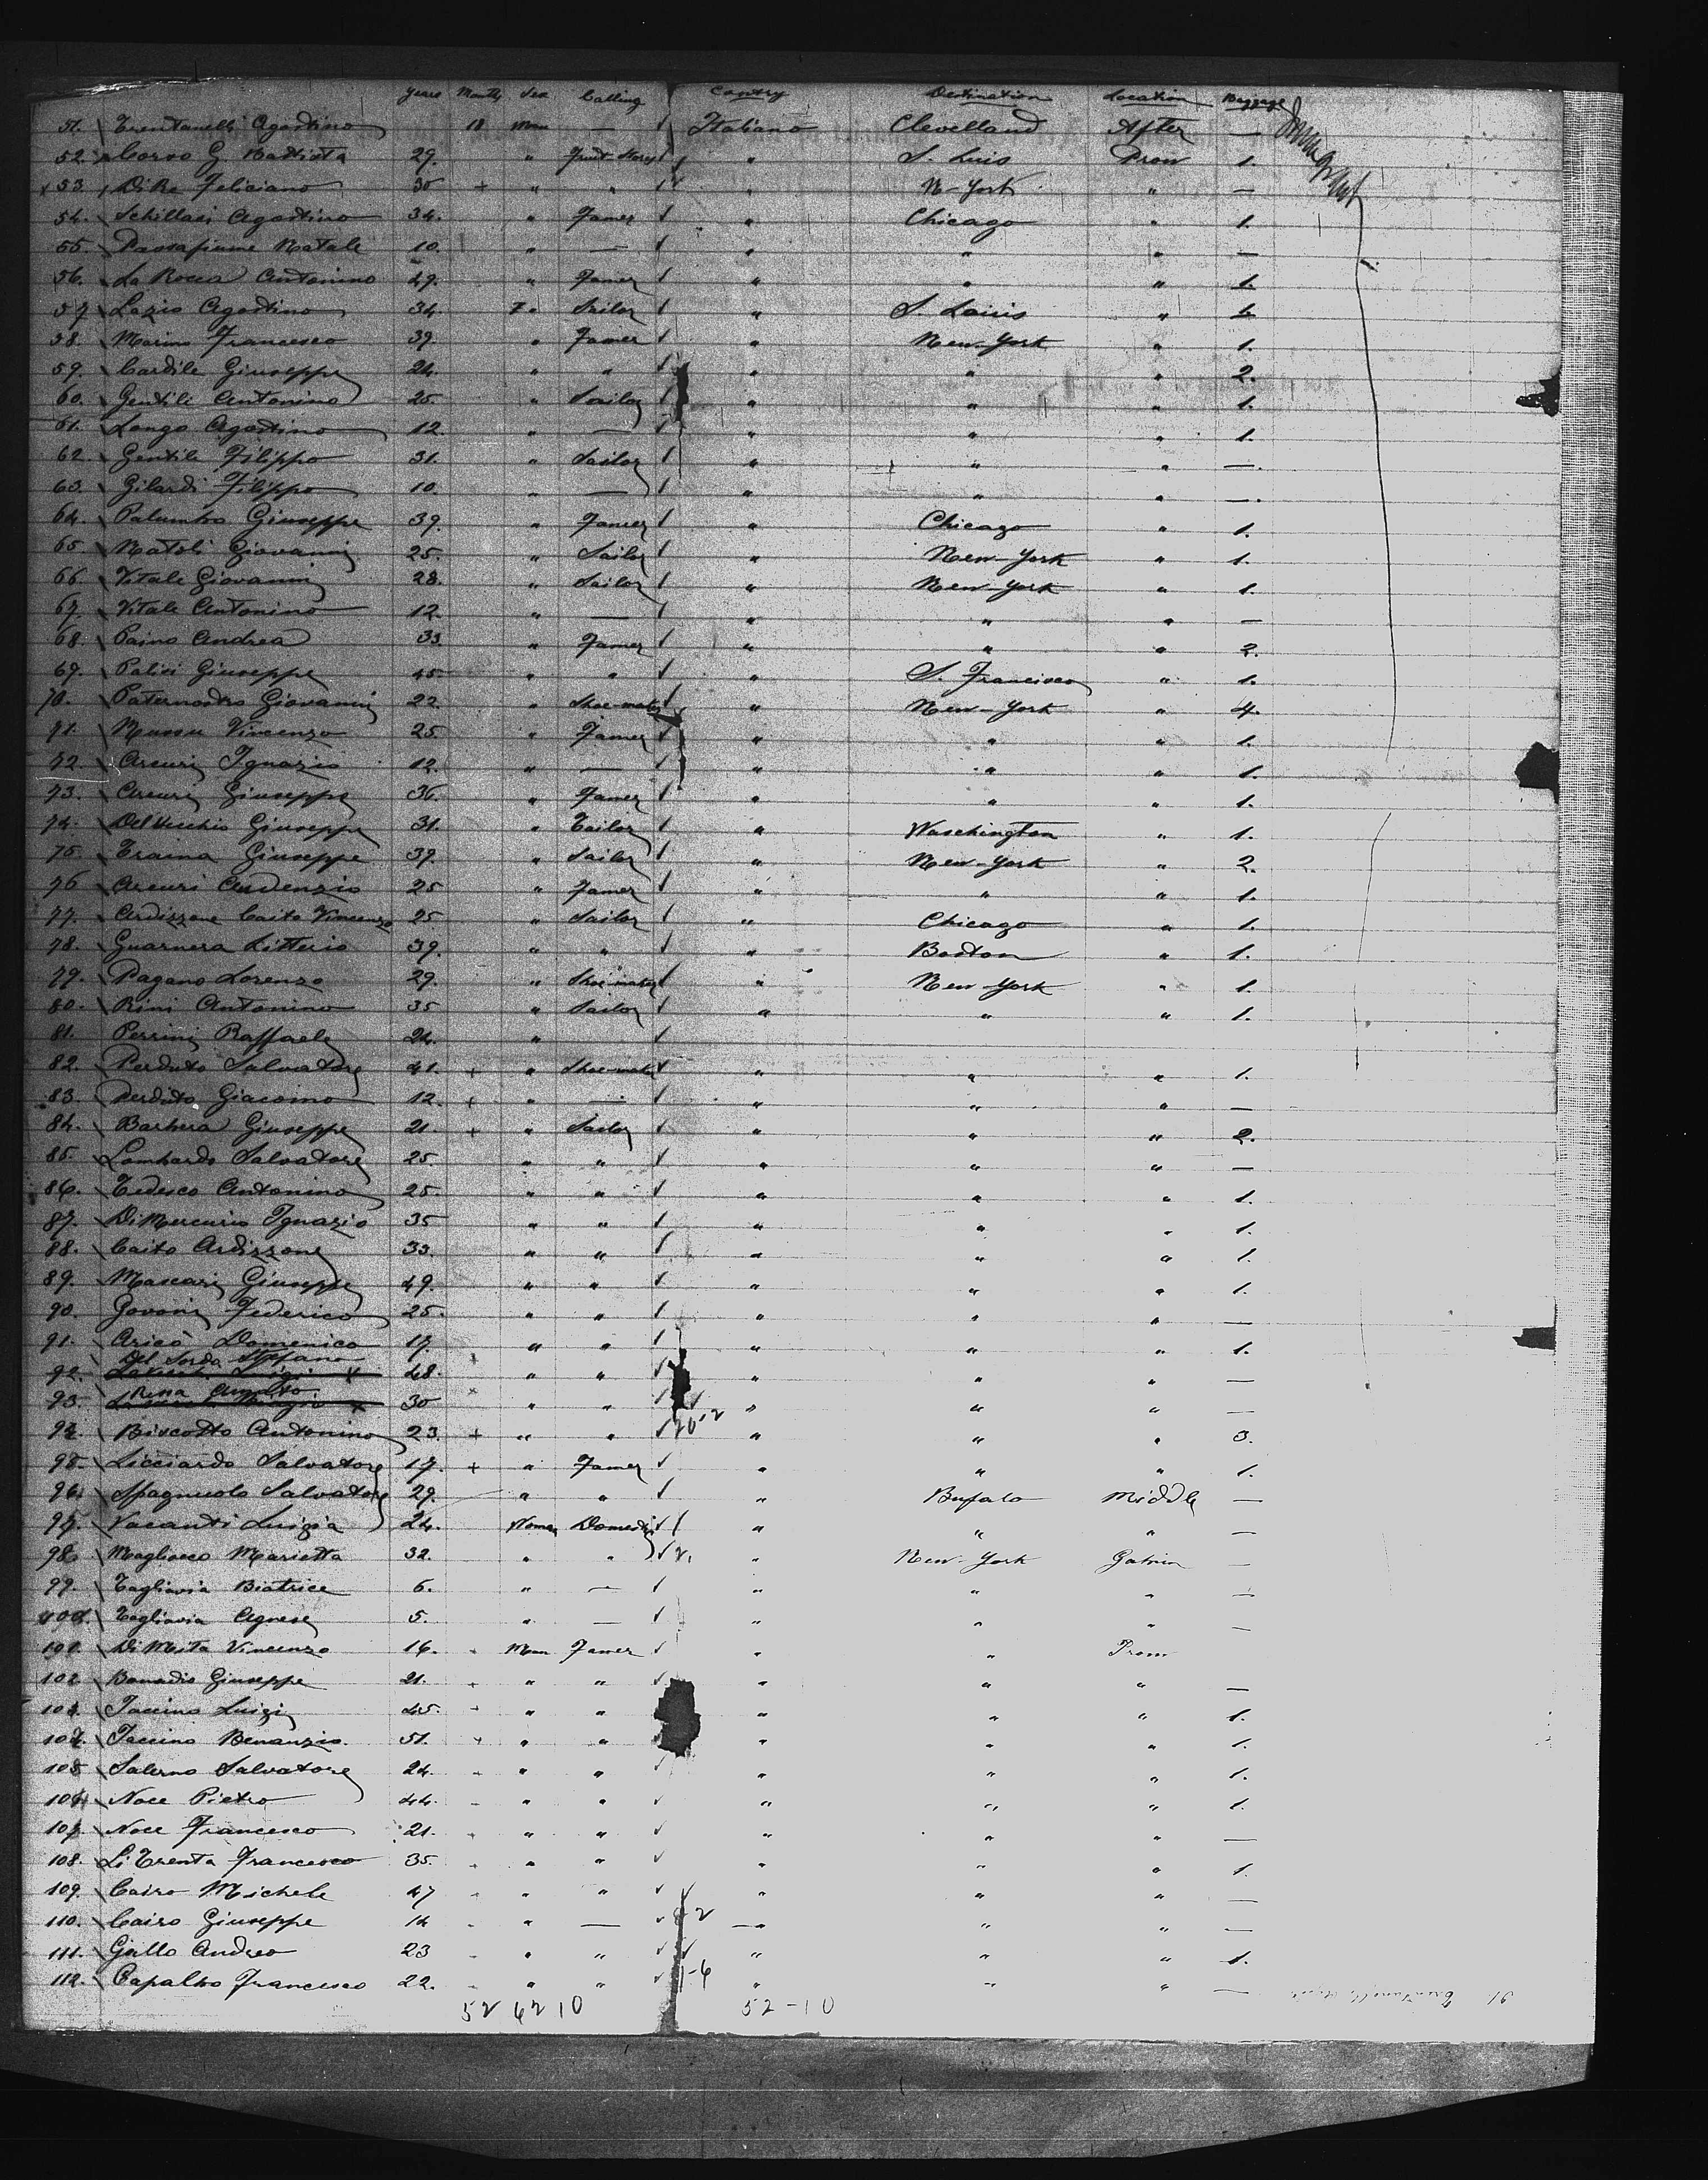 Years Months Sex Calling Contry Destination Location Baggage
51. Trentanelli Agostino 11 Man — Italiano Clevelland After —
52. Corvo G. Battista 29. " Fruit Store " S. Luis Pron 1.
53. Di Re Feliciano 30 + " " " N-York " —
54. Schillaci Agostino 34. " Famer " Chicago " 1.
55. Passafiume Natale 10. " — " " " —
56. La Rocca Antonino 49. " Famer " " " 1.
57 Lazio Agostino 34. " Sailor " S. Louis " 1.
58. Marino Francesco 39. " Famer " New-York " 1.
59. Cardile Giuseppe 24. " " " " " 2.
60. Gentile Antonino 25. " Sailor " " " 1.
61. Longo Agostino 12. " — " " " 1.
62. Gentile Filippo 31. " Sailor " " " —.
63. Gilardi Filippo 10. " — " " " —.
64. Palumbo Giuseppe 39. " Famer " Chicago " 1.
65. Natoli Giovanni 25. " Sailor " New-York " 1.
66. Vitale Giovanni 28. " Sailor " New-York " 1.
67. Vitale Antonino 12. " — " " " —
68. Paino Andrea 33. " Famer " " " 2.
69. Palisi Giuseppe 45 " " " S. Francisco " 1.
70. Paternostro Giovanni 22. " Shoe-maker " New-York " 4.
71. Mussu Vincenzo 25 " Famer " " " 1.
72. Arcuri Ignazio 12. " — " " " 1.
73. Arcuri Giuseppe 36. " Famer " " " 1.
74. Del Vecchio Giuseppe 31. " Tailor " Waschington " 1.
75. Traina Giuseppe 39. " Sailor " New-York " 2.
76 Arcuri Audenzio 25 " Famer " " " 1.
77. Ardizzone Caito Vincenzo 25 " Sailor " Chicago " 1.
78. Guarnera Litterio 39. " " " Boston " 1.
79. Pagano Lorenzo 29. " Shoe-maker " New-York " 1.
80. Rini Antonino 35 " Sailor " " " 1.
81. Perrini Raffaele 24. "
82. Perduto Salvatore 41. + " Shoe-maker " " " 1.
83 Perduto Giacomo 12. + " — " " " —
84. Barbera Giuseppe 21. + " Sailor " " " 2.
85. Lombardo Salvatore 25. " " " " " —
86. Tedesco Antonino 25. " " " " " 1.
87. Di Mercurio Ignazio 35 " " " " " 1.
88. Caito Ardizzone 33. " " " " " 1.
89. Mascari Giuseppe 49. " " " " " 1.
90. Govoni Federico 25. " " " " " —
91. Aricò Domenico 17. " " " " " 1.
Del Sorda Stefano
92. 48. " " " " " —
93. 30 " " " " " —
94. Biscotto Antonino 23. + " " 20-2 " " " 3.
95. Licciardo Salvatore 17. + " Famer " " " 1.
96. Spagnuolo Salvatore 29. " " " Bufalo Middle —
97. Vacanti Luigia 24. Women Domestic " " " —
98. Magliocco Marietta 32. " " 2. " New-York —
99. Tagliavia Biatrice 6. " — " " " —
100. Tagliavia Agnese 5. " — " " " —
101. Di Maita Vincenzo 16. Man Famer " " Pron
102 Bonadio Giuseppe 21. + " " " " " —
103. Iaccino Luigi 45. " " " " " 1.
104. Iaccino Benanzio. 51. + " " " " " 1.
105 Salerno Salvatore 24. " " " " " 1.
106 Noce Pietro 44. " " " " " 1.
107. Noce Francesco 21. " " " " " —
108. Li Trenta Francesco 35. " " " " " 1.
109. Cairo Michele 47 " " " " " —
110. Cairo Giuseppe 14 " — " " " —
111. Gallo Andrea 23 " " " " " 1.
112. Capalbo Francesco 22. " " 1-6 " " " —
52 62 10 52-10